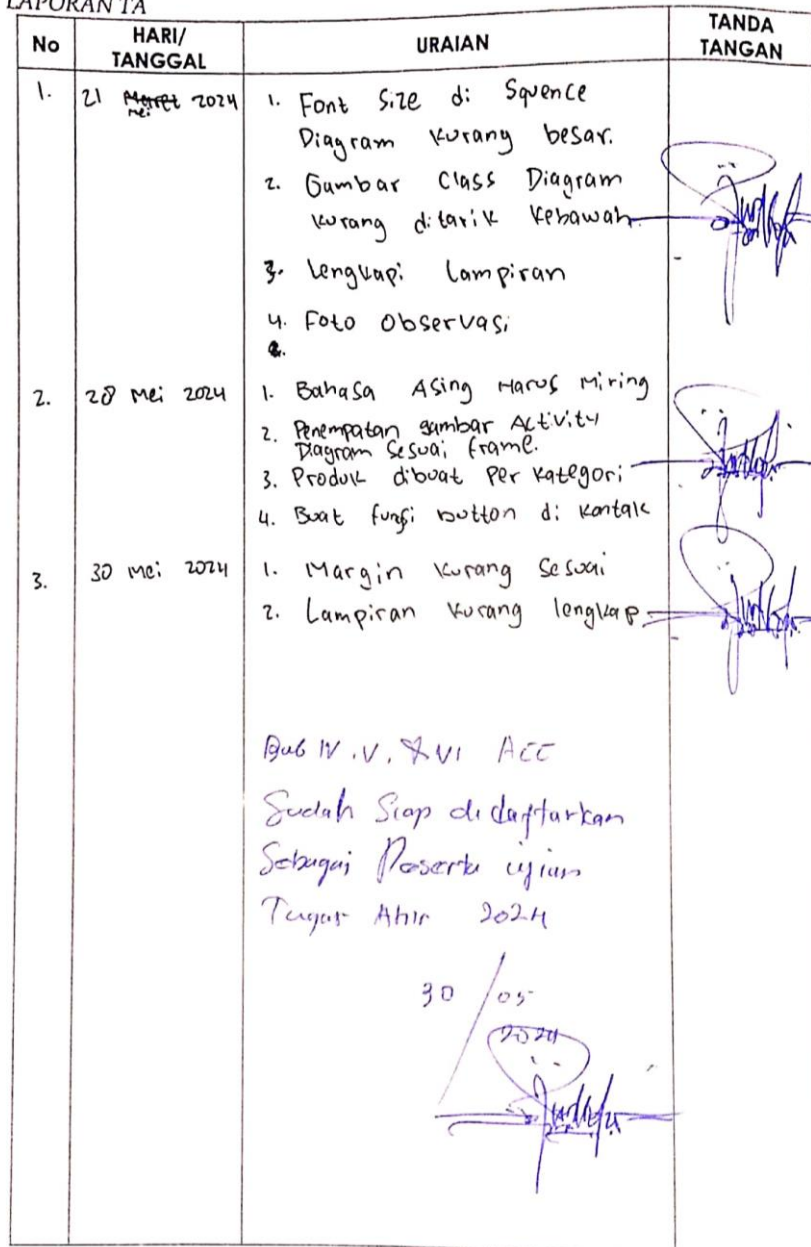 LAPORAN TA
No
HARI/
TANGGAL
URAIAN
TANDA
TANGAN
1.
21 Maret 2024
Mei
1. Font Size di Squence
Diagram kurang besar.
2. Gambar Class Diagram
kurang ditarik kebawah.
3. Lengkapi Lampiran
4. Foto Observasi
2.
28 Mei 2024
1. Bahasa Asing Harus Miring
2. Penempatan gambar Activity
Diagram Sesuai frame.
3. Produk dibuat Per Kategori
4. Buat fungsi button di Kontak
3.
30 Mei 2024
1. Margin kurang Sesuai
2. Lampiran kurang lengkap
Bab IV. V. & VI ACC
Sudah Siap didaftarkan
Sebagai Peserta ujian
Tugas Ahir 2024
30 / 05
2024